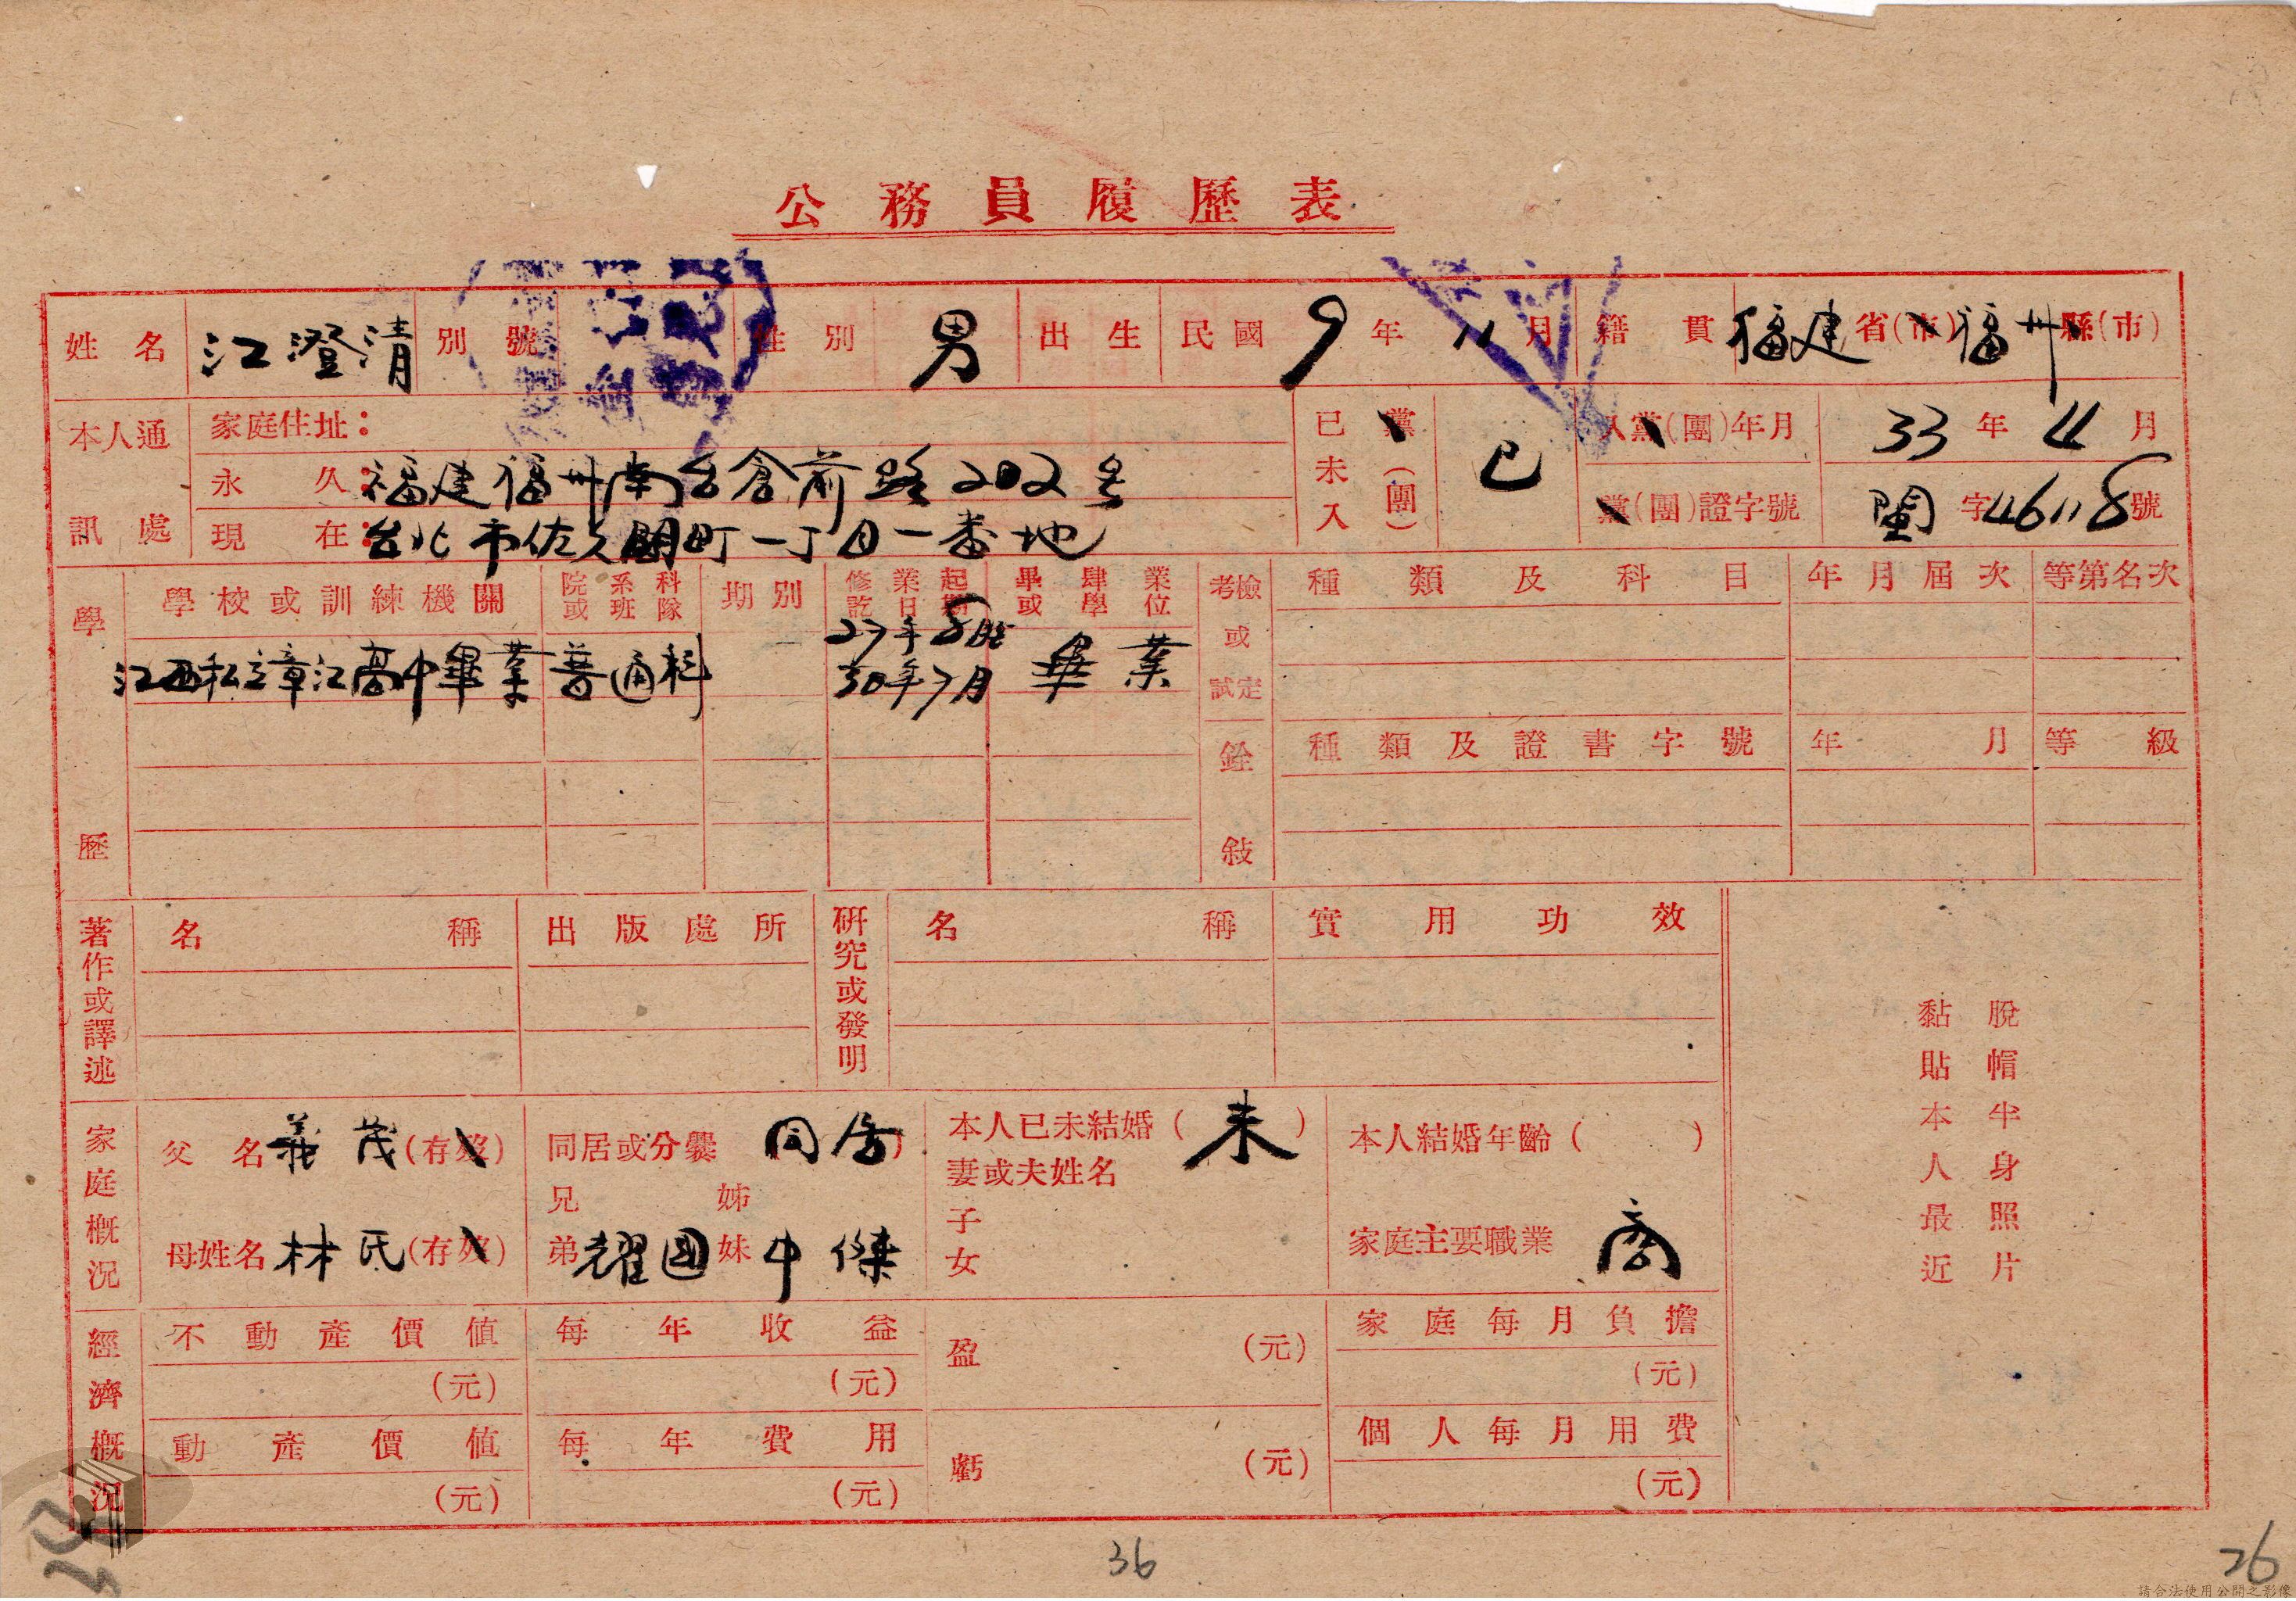 公務員履歷表
姓名 江澄清 別號 性別 男 出生 民國 9年 11月 籍貫 福建省(市)福州縣(市)
本人通訊處 家庭住址：
永久：福建福州南台倉前路202号
現在：台北市佐久間町一丁目一番地
已未入黨(團) 已 入黨(團)年月 33年 4月
黨(團)證字號 閩字46118號
學歷 學校或訓練機關 院系科或班隊 期別 修業起訖日期 畢肄業或學位 考檢或試定 種類及科目 年月屆次 等第名次
江西私立章江高中畢業 普通科 27年8月 30年7月 畢業
銓敍 種類及證書字號 年月 等級
著作或譯述 名稱 出版處所 研究或發明 名稱 實用功效
黏貼本人最近脫帽半身照片
家庭概況 父名 義茂(存歿) 同居或分爨 同居 本人已未結婚(未) 本人結婚年齡( )
妻或夫姓名
兄 姊 子
母姓名 林氏(存歿) 弟 耀國 妹 中傑 女 家庭主要職業 商
經濟概況 不動產價值 每年收益 盈 (元) 家庭每月負擔
(元) (元) (元)
動產價值 每年費用 虧 (元) 個人每月用費
(元) (元) (元)
36
26
請合法使用公開之影像